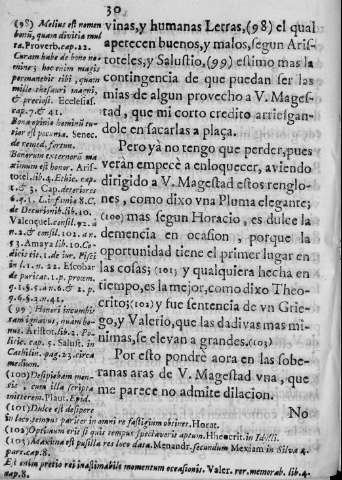 30
(98) Melius est nomen
bonũ, quam divitia mul
ta. Proverb. cap. 22.
Curam habe de bono no
mine; hoc enim magis
permanebit tibi, quam
mille thesauri magni,
& preciosi. Ecclesias.
cap. 7. & 41.
Bona opinio hominũ tu-
tior est pecunia. Senec.
de remed. fortun.
Bonorum externorũ ma
ximum est honor. Aris-
totel. lib. 4. Ethic. cap.
1. & 3. Cap. deteriores
6. q. 1. L. infamia 8. C.
de Decurionib. lib. 10.
Valenzuel. consil. 92. à
n. 2. & consil. 102. à n.
53. Amaya lib. 10. Co-
Escobar
de puritat. 1. p. proxm.
(99) Honori incumbit
tam ignavus, quàm bo-
nus. Aristot. lib. 2. Po-
litic. cap. 5. Salust. in
Catilin. pag. 23. circa
medium.
(100) Desipiebam men-
tis, cum illa scripta
mitterem. Plaut. Epid.
vinas, y humanas Letras, (98) el qual
apetecen buenos, y malos, segun Aris-
toteles, y Salustio, (99) estimo mas la
contingencia de que puedan ser las
mias de algun provecho a V. Mages-
tad, que mi corto credito arriesgan-
dole en sacarlas a plaça.
Pero yà no tengo que perder, pues
veràn empecè a enloquecer, aviendo
dirigido a V. Magestad estos renglo-
nes, como dixo vna Pluma elegante;
(100) mas segun Horacio, es dulce la
demencia en ocasion, porque la
oportunidad tiene el primer lugar en
las cosas; (101) y qualquiera hecha en
tiempo, es la mejor, como dixo Theo-
crito; (102) y fue sentencia de vn Grie-
go, y Valerio, que las dadivas mas mi-
nimas, se elevan a grandes. (103)
Por esto pondrè aora en las sobe-
ranas aras de V. Magestad vna, que
me parece no admite dilacion.
No
(101) Dulce est desipere
in loco, tempus pariter in omni re fastigium obtinet. Horat.
(102) Optimum erit si quis tempus spectaverit aptum. Theocrit. in Idilli.
(103) Maxima est pusilla res loco data. Menandr. secundum Mexiam in Silva 4.
part. cap. 8.
Est enim pretio rei inæstimabile momentum occasionis. Valer. rer. memorab. lib. 4.
cap. 8.